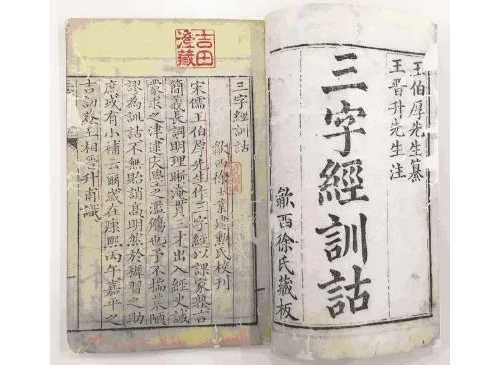 王伯厚先生纂
王晋升先生注
三字經訓詁
歙西徐氏藏板
吉田
澄藏
三字經訓詁
歙西徐士業建勳氏校刊
宋儒王伯厚先生作三字經以課家塾言
簡義長詞明理晰淹貫三才出入經史誠
蒙求之津逮大學之濫觴也予不揣陋
謬為訓詁不無貽誚高明然於稺習之助
庶或有小補云爾歲在康熙丙午嘉平之
吉訒菴王相晋升甫識